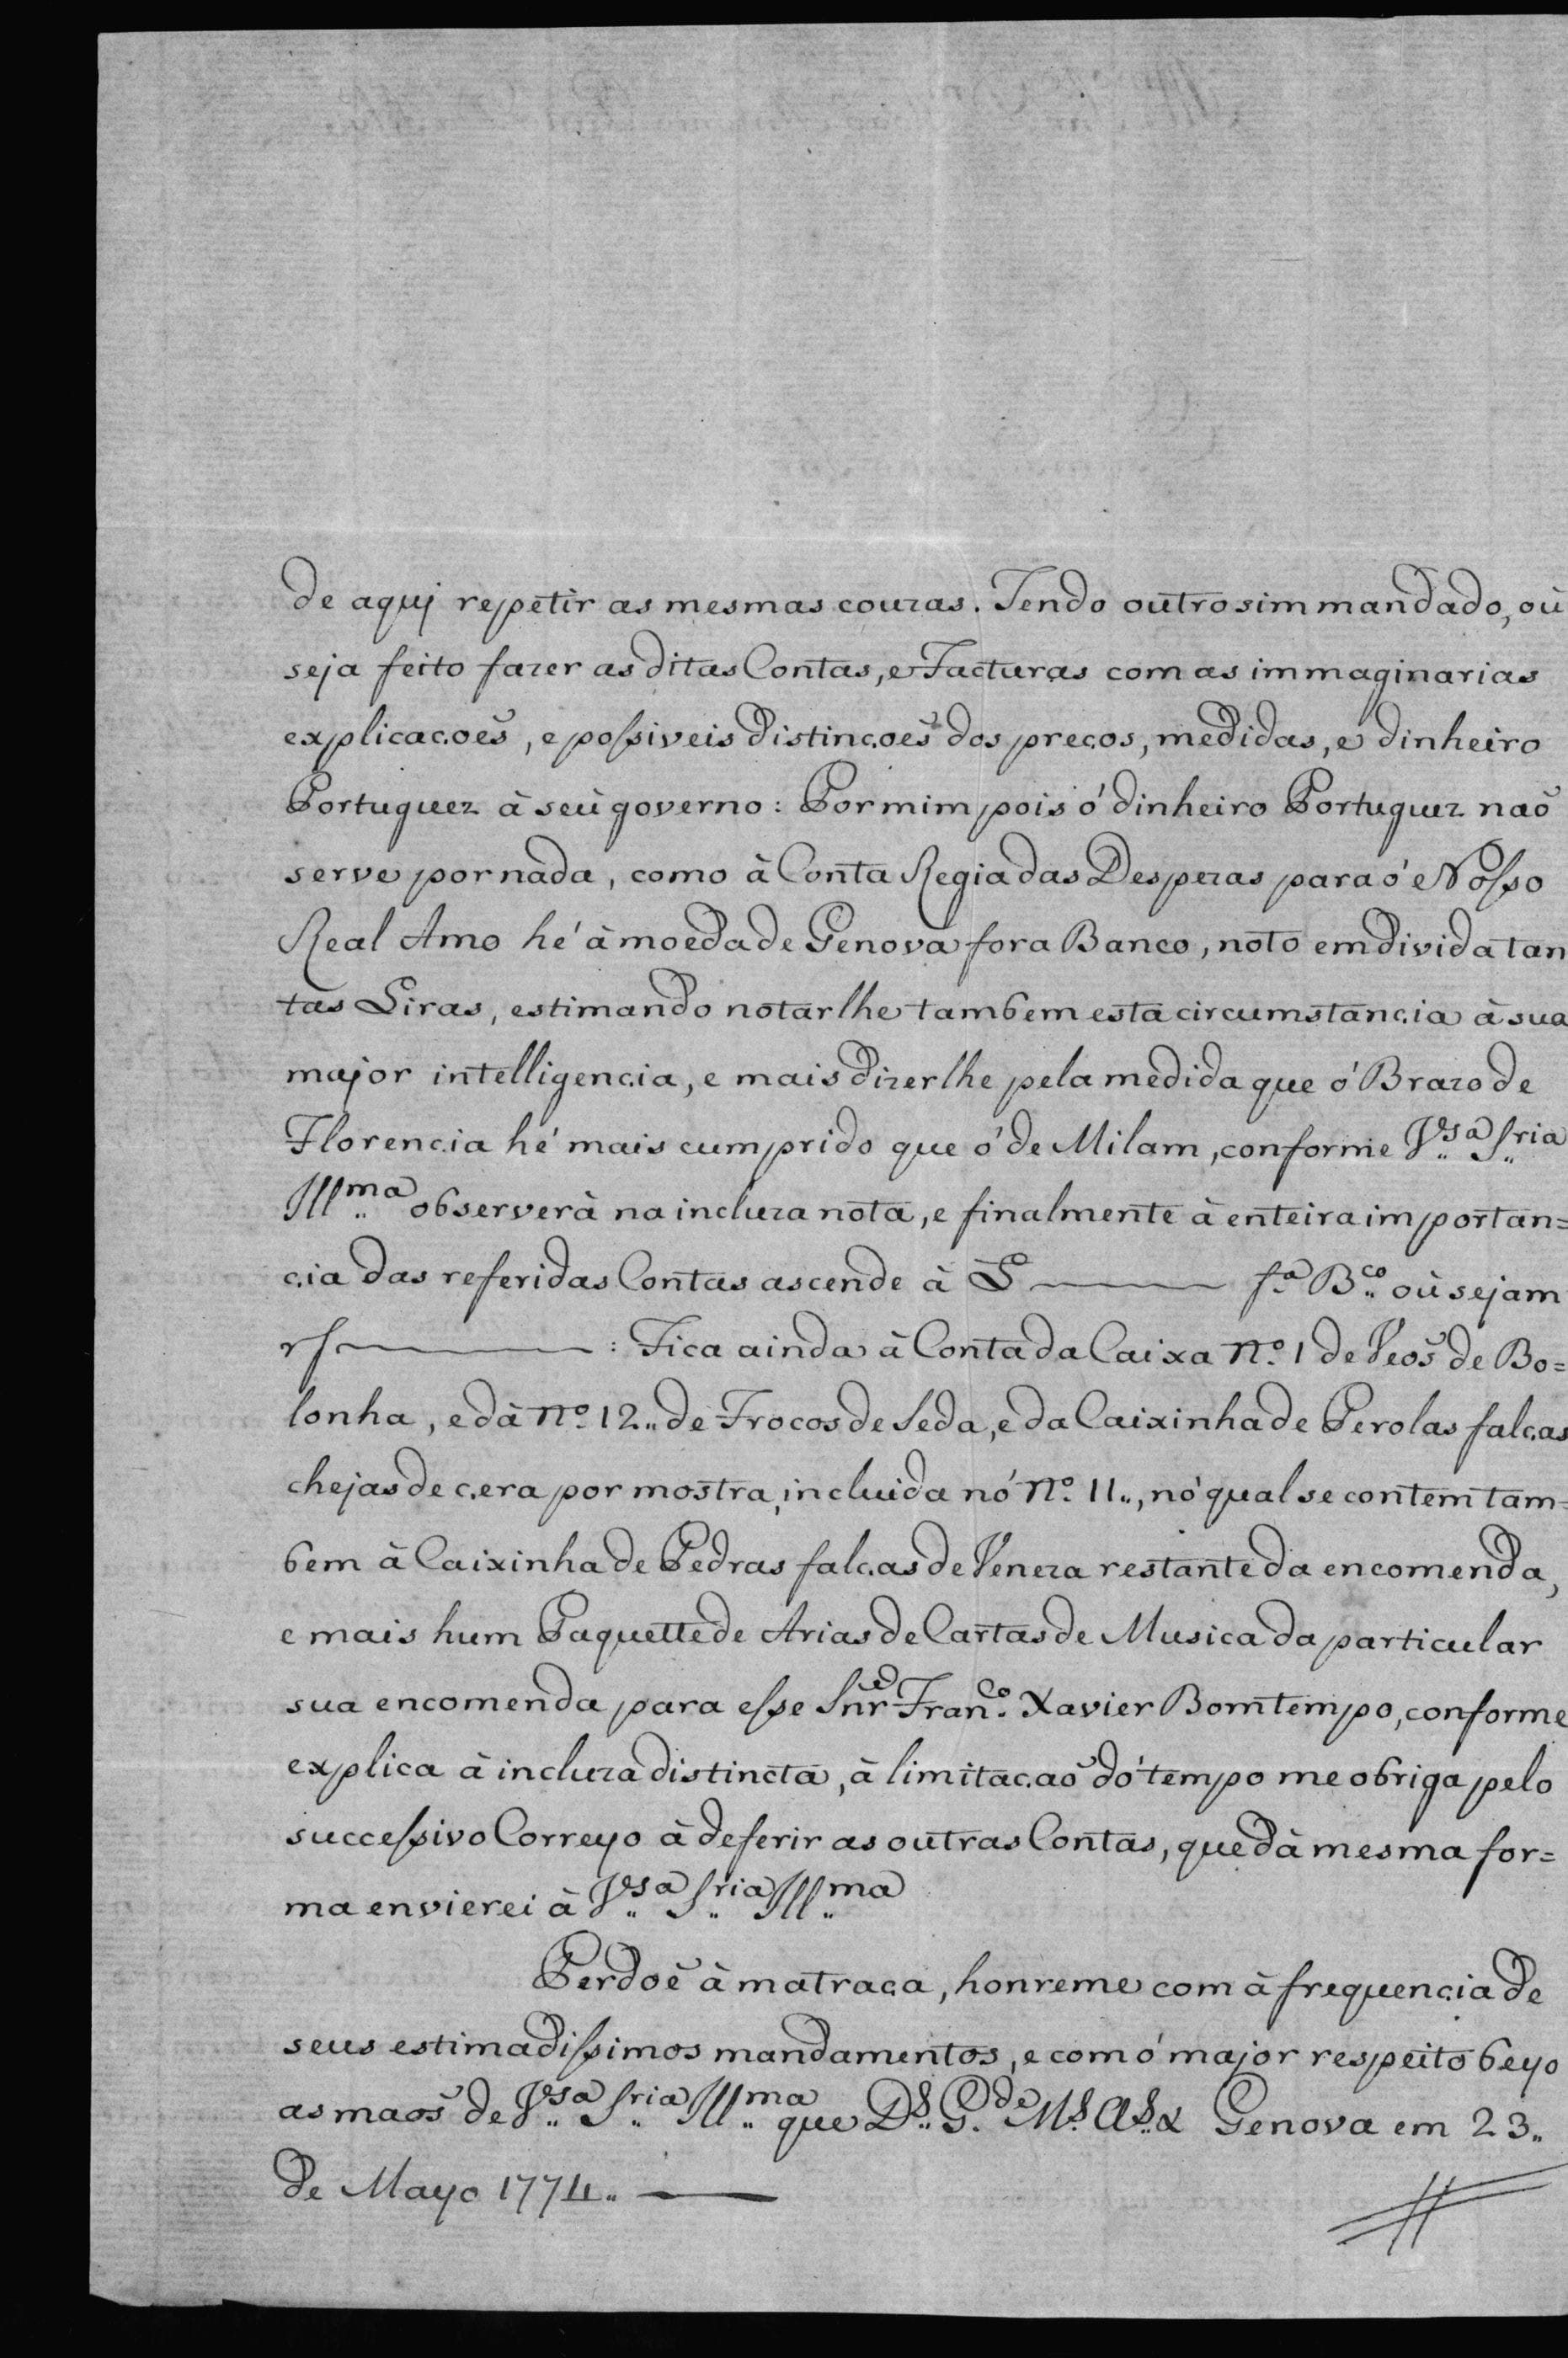 de aquj repetir as mesmas couzas. Tendo outrosim mandado, où
seja feito fazer as ditas Contas, e Facturas com as immaginarias
explicacoẽs, e possiveis distincoẽs dos precos, medidas, e dinheiro
Portuguez à seù governo: Por mim pois ó dinheiro Portuguez naõ
serve por nada, como à Conta Regia das Despezas para ó Nosso
Real Amo hé à moeda de Genova fora Banco, noto em divida tan
tas Liras, estimando notarlhe tambem esta circumstancia à sua
major intelligencia, e mais dizerlhe pela medida que ó Brazo de
Florencia hé mais cumprido que ó de Milam, conforme V.sa S.ria
Ill.ma observerà na incluza nota, e finalmente à enteira importan=
cia das referidas Contas ascende à L ——— f.a B.co où sejam
rs ———: Fica ainda à Conta da Caixa N.o 1 de Veos de Bo=
lonha, e dà N.o 12.. de Frocos de Seda, e da Caixinha de Perolas falcas
chejas de cera por mostra, incluida nó N.o 11.., nó qual se contem tam=
bem à Caixinha de Pedras falcas de Veneza restante da encomenda,
e mais hum Paquette de Arias de Cartas de Musica da particular
sua encomenda para esse Snr Fran.co Xavier Bomtempo, conforme
explica à incluza distincta, à limitacaõ dó tempo me obriga pelo
successivo Correyo à deferir as outras Contas, que dà mesma for=
ma envierei à V.sa S.ria Ill.ma
Perdoè à matraca, honreme com à frequencia de
seus estimadissimos mandamentos, e com ó major respeito beyo
as maõs de V.sa S.ria Ill.ma que D.s G.de M.s A.s & Genova em 23..
de Mayo 1774.. ——